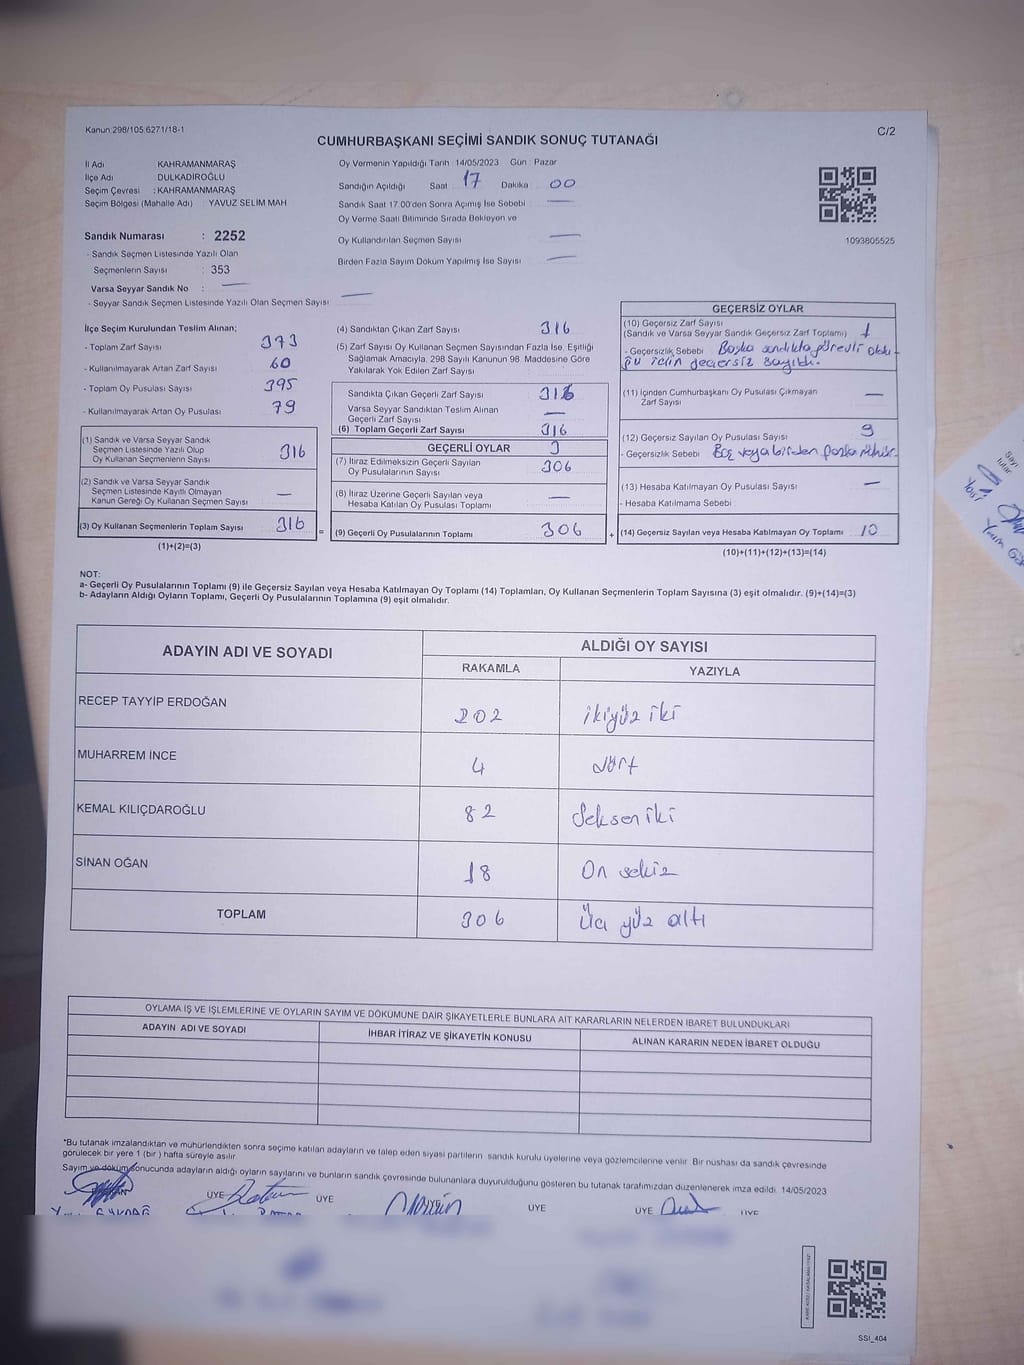 Kanun:298/105,6271/18-1
C/2
CUMHURBAŞKANI SEÇİMİ SANDIK SONUÇ TUTANAĞI
İl Adı KAHRAMANMARAŞ
İlçe Adı DULKADİROĞLU
Seçim Çevresi : KAHRAMANMARAŞ
Seçim Bölgesi (Mahalle Adı) YAVUZ SELİM MAH
Sandık Numarası : 2252
- Sandık Seçmen Listesinde Yazılı Olan
Seçmenlerin Sayısı : 353
Varsa Seyyar Sandık No : —
- Seyyar Sandık Seçmen Listesinde Yazılı Olan Seçmen Sayısı —
Oy Vermenin Yapıldığı Tarih 14/05/2023 Gün : Pazar
Sandığın Açıldığı Saat 17 Dakika 00
Sandık Saat 17.00'den Sonra Açımış İse Sebebi —
Oy Verme Saati Bitiminde Sırada Bekleyen ve
Oy Kullandırılan Seçmen Sayısı —
Birden Fazla Sayım Döküm Yapılmış İse Sayısı —
1093805525
İlçe Seçim Kurulundan Teslim Alınan;
- Toplam Zarf Sayısı 373
- Kullanılmayarak Artan Zarf Sayısı 60
- Toplam Oy Pusulası Sayısı 395
- Kullanılmayarak Artan Oy Pusulası 79
(1) Sandık ve Varsa Seyyar Sandık
Seçmen Listesinde Yazılı Olup
Oy Kullanan Seçmenlerin Sayısı 316
(2) Sandık ve Varsa Seyyar Sandık
Seçmen Listesinde Kayıtlı Olmayan
Kanun Gereği Oy Kullanan Seçmen Sayısı —
(3) Oy Kullanan Seçmenlerin Toplam Sayısı 316
(1)+(2)=(3)
(4) Sandıktan Çıkan Zarf Sayısı 316
(5) Zarf Sayısı Oy Kullanan Seçmen Sayısından Fazla İse, Eşitliği
Sağlamak Amacıyla, 298 Sayılı Kanunun 98. Maddesine Göre
Yakılarak Yok Edilen Zarf Sayısı
Sandıkta Çıkan Geçerli Zarf Sayısı 316
Varsa Seyyar Sandıktan Teslim Alınan
Geçerli Zarf Sayısı —
(6) Toplam Geçerli Zarf Sayısı 316
GEÇERLİ OYLAR
(7) İtiraz Edilmeksizin Geçerli Sayılan
Oy Pusulasının Sayısı 306
(8) İtiraz Üzerine Geçerli Sayılan veya
Hesaba Katılan Oy Pusulası Toplamı —
= (9) Geçerli Oy Pusulalarının Toplamı 306
GEÇERSİZ OYLAR
(10) Geçersiz Zarf Sayısı
(Sandık ve Varsa Seyyar Sandık Geçersiz Zarf Toplamı) 1
- Geçersizlik Sebebi Başka sandıkta görevli oldu-
ğu için geçersiz sayıldı.
(11) İçinden Cumhurbaşkanı Oy Pusulası Çıkmayan
Zarf Sayısı —
(12) Geçersiz Sayılan Oy Pusulası Sayısı 9
- Geçersizlik Sebebi Boş veya birden fazla mühür.
(13) Hesaba Katılmayan Oy Pusulası Sayısı —
- Hesaba Katılmama Sebebi
+ (14) Geçersiz Sayılan veya Hesaba Katılmayan Oy Toplamı 10
(10)+(11)+(12)+(13)=(14)
NOT:
a- Geçerli Oy Pusulalarının Toplamı (9) ile Geçersiz Sayılan veya Hesaba Katılmayan Oy Toplamı (14) Toplamları, Oy Kullanan Seçmenlerin Toplam Sayısına (3) eşit olmalıdır. (9)+(14)=(3)
b- Adayların Aldığı Oyların Toplamı, Geçerli Oy Pusulalarının Toplamına (9) eşit olmalıdır.
ADAYIN ADI VE SOYADI ALDIĞI OY SAYISI
RAKAMLA YAZIYLA
RECEP TAYYİP ERDOĞAN 202 ikiyüz iki
MUHARREM İNCE 4 dört
KEMAL KILIÇDAROĞLU 82 Seksen iki
SİNAN OĞAN 18 On sekiz
TOPLAM 306 Üç yüz altı
OYLAMA İŞ VE İŞLEMLERİNE VE OYLARIN SAYIM VE DÖKÜMÜNE DAİR ŞİKAYETLERLE BUNLARA AİT KARARLARIN NELERDEN İBARET BULUNDUKLARI
ADAYIN ADI VE SOYADI İHBAR İTİRAZ VE ŞİKAYETİN KONUSU ALINAN KARARIN NEDEN İBARET OLDUĞU
*Bu tutanak imzalandıktan ve mühürlendikten sonra seçime katılan adayların ve talep eden siyasi partilerin sandık kurulu üyelerine veya gözlemcilerine verilir. Bir nüshası da sandık çevresinde
görülecek bir yere 1 (bir ) hafta süreyle asılır.
Sayım ve döküm sonucunda adayların aldığı oyların sayılarını ve bunların sandık çevresinde bulunanlara duyurulduğunu gösteren bu tutanak tarafımızdan düzenlenerek imza edildi. 14/05/2023
ÜYE ÜYE ÜYE ÜYE ÜYE
SSI_404